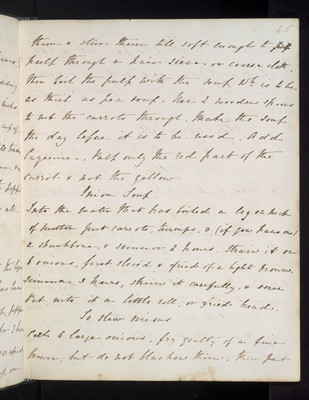 45
them & stew them till soft enough to
pulp through a hair sieve or coarse cloth.
then boil the pulp with the soup, wh: is to be
as thick as pea soup. Use 2 wooden spoons
to rub the carrots through. Make this soup
the day before it is to be used. Add
Cayenne. Pulp only the red part of the
carrot & not the yellow
Onion Soup
Into the water that has boiled a leg or neck
of mutton put carrots, turnips, & (if you have one)
a shankbone, & simmer 2 hours. Strain it on
6 onions, first sliced & fried of a light brown.
Simmer 3 hours, skim it carefully, & serve
Put into it a little roll, or fried bread.
To stew onions
Peel 6 large onions, fry gently of a fine
brown, but do not blacken them; then put